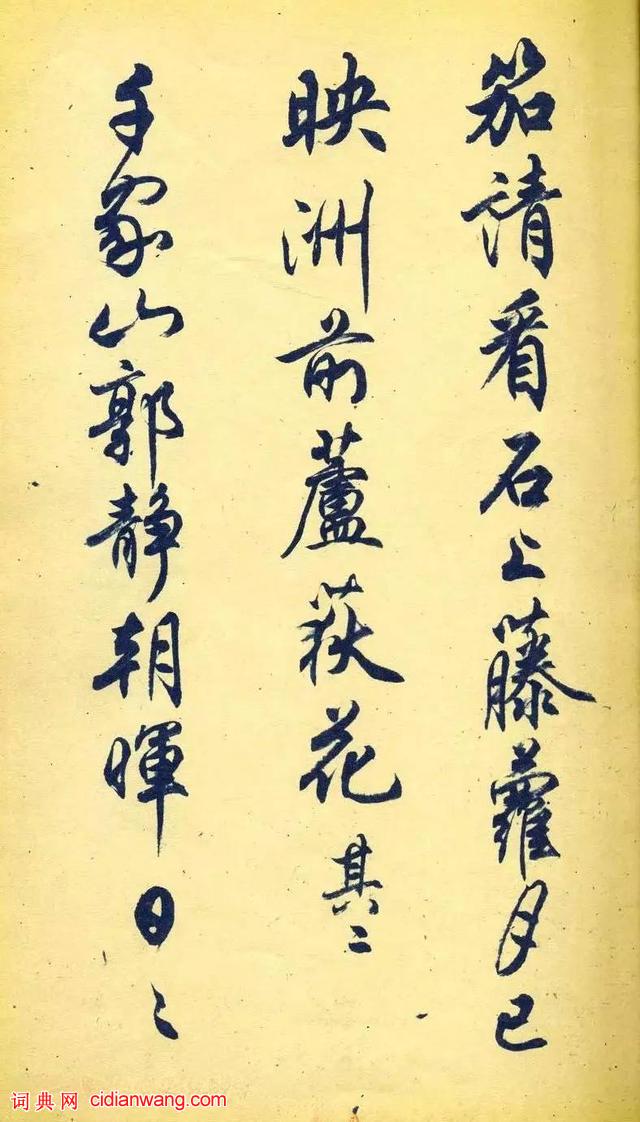 笳請看石上藤蘿月已
映洲前蘆荻花 其二
千家山郭静朝暉日〻
词典网 cidianwang.com